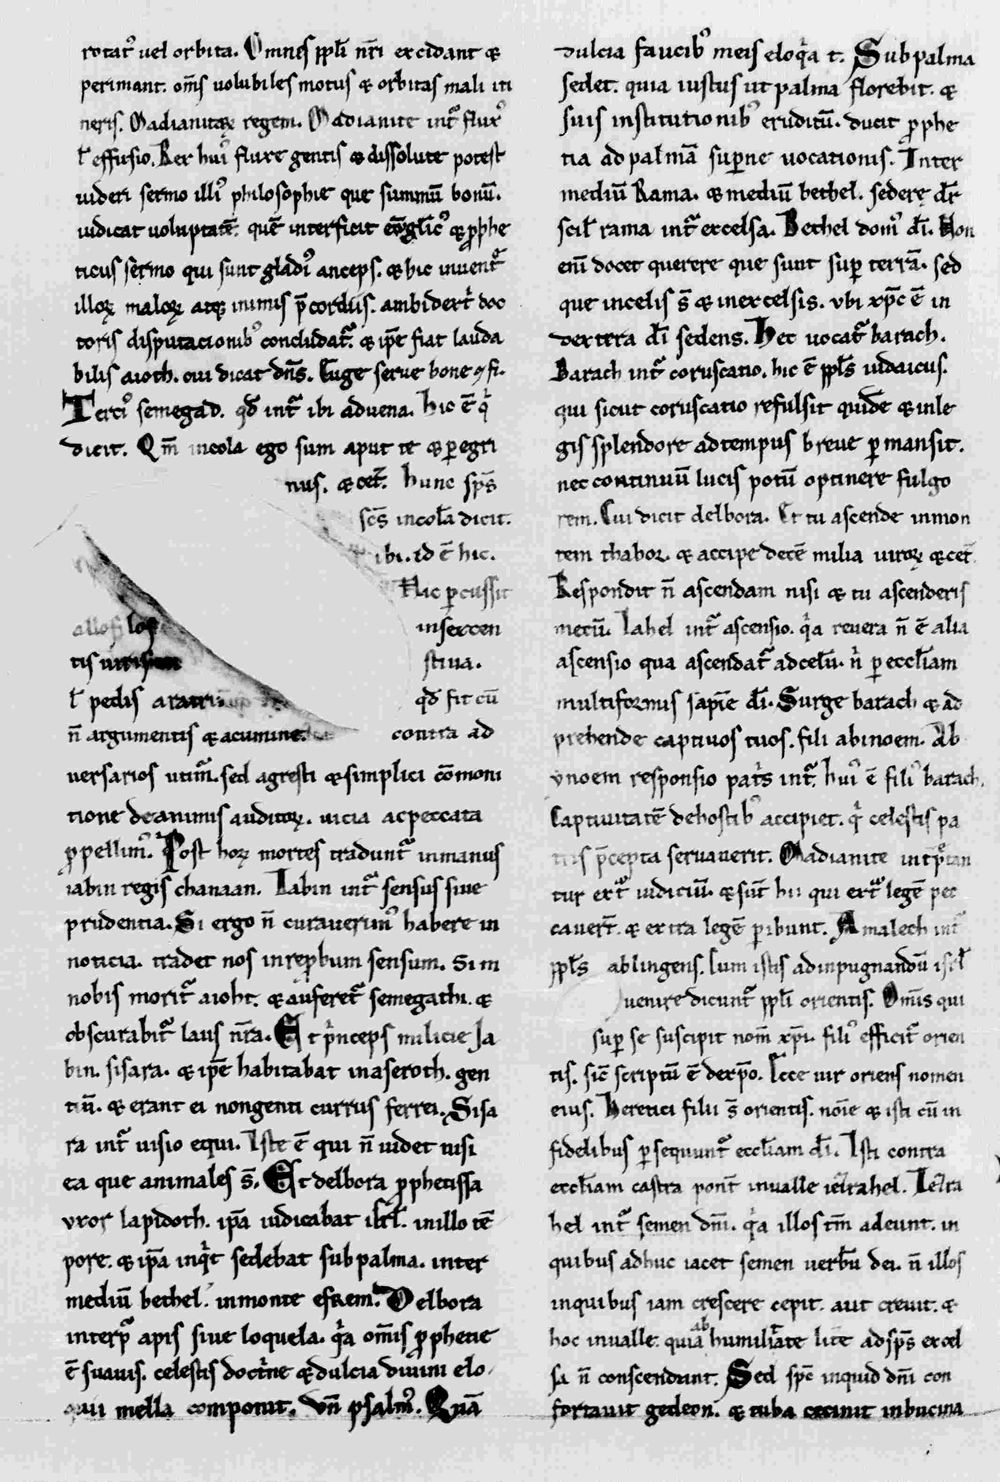 rotat᷒ uel orbita. Omnes ppl̄i nr̄i excidant &
perimant. om̄s uolubiles motus & orbitas mali iti
neris. Madianitaꝝ regem. Madianite int᷒ flux᷒
ł effusio. Rex hui᷒ fluxe gentis & dissolute potest
uideri sermo illi᷒ philosophie que summū bonū.
iudicat uoluptatē. quē interficit eu̅gl̅ic᷒ & ꝓphe
ticus sermo qui sunt gladi᷒ anceps. & hic inuent᷒
illoꝝ maloꝝ atq; inimis p̄cordiis. ambidext̄i doc
toris disputacionib᷒ concludat᷒. & ip̄e fiat lauda
bilis aioth. cui dicat dn̄s. Euge serue bone & fi.
Terci᷒ semegad. qd̄ int᷒ ibi aduena. Hic ē q̄
dicit. Qm̄ incola ego sum aput te & ꝑegri
nus. & cet̄. Hunc sp̄s
sc̄s incolā dicit.
ibi. id ē hic.
Hic ꝑcussit
allof; los insexcen
tis uiris stiua.
ł pedis aratri qd̄ fit cū
n̄ argumentis & acumine contra ad
uersarios utim᷒. sed agresti & simplici cōmoni
tione de animis auditoꝝ. uicia ac peccata
ꝓpellim᷒. Post hoꝝ mortes tradunt᷒ in manus
iabin regis chanaan. Iabin int᷒ sensus siue
prudentia. Si ergo n̄ curauerim᷒ habere in
noticia. tradet nos in reꝓbum sensum. Si in
nobis morit᷒ aioht. & auferet᷒ semegathi. &
obscurabit᷒ laus nr̄a. Et p̄nceps milicie Ia
bin. sisara. & ip̄e habitabat in aseroth. gen
tiū. & erant ei nongenti currus ferrei. Sisa
ra int᷒ uisio equi. Iste ē qui n̄ uidet nisi
ea que animales s̄. Et delbora ꝓphetissa
uxor lapidoth. ip̄a iudicabat isr̄l. in illo tē
pore. & ip̄a inq̄t sedebat sub palma. inter
mediū bethel. in monte efrem. Delbora
interp̄ apis siue loquela. q̄a om̄is ꝓphetie
ē suauis. celestis doct̄ne & dulcia diuini elo
quii mella componit. Vn̄ psalm᷒. Quā
dulcia faucib᷒ meis eloq̄a t. Sub palma
sedet. quia iustus ut palma florebit. &
suis institutionib᷒ eruditū. ducit ꝓphe
tia ad palmā sup̄ne uocationis. Inter
mediū Rama. & mediū bethel. sedere dr̄
scil̄ rama int᷒ excelsa. Bethel dom᷒ dī. Non
enī docet querere que sunt suꝑ terrā. sed
que in celis s̄ & in excelsis. ubi xp̄c ē in
dextera dī sedens. Hec uocat᷒ barach.
Barach int᷒ coruscatio. hic ē ppl̄s iudaicus.
qui sicut coruscatio refulsit quidē & in le
gis splendore ad tempus breue ꝑmansit.
nec continuū lucis potuī optinere fulgo
rem. Cui dicit delbora. Et tu ascende in mon
tem thabor. & accipe decē milia uiroꝝ & cet̄
Respondit n̄ ascendam nisi & tu ascenderis
mecū. Iahel int᷒ ascensio. q̄a reuera n̄ ē alia
ascensio qua ascendat᷒ ad celū. n̄ ꝑ eccl̄iam
multiformis sapīe dī. Surge barach & ad
prehende captiuos tuos. fili abinoem. Ab
ynoem responsio pat̄s int᷒. hui᷒ ē fili᷒ barach.
Captiuitatē de hostib᷒ accipiet. q̄ celestis pa
tris p̄cepta seruauerit. Madianite int̄p̄tan
tur ext᷒ iudiciū. & sūt hii qui ext᷒ legē pec
cauer̄t. & ex ita legē ꝑibunt. Amalech int᷒
ppl̄s ablingens. Cum istis ad inpugnandū isr̄l
uenire dicunt᷒ ppl̄i orientis. Om̄is qui
suꝑ se suscipit nom̄ xp̄i. fili᷒ efficit᷒ orien
tis. sic̄ scriptū ē de xp̄o. Ecce uir oriens nomen
eius. Heretici filii s̄ orientis. noīe & isti cū in
fidelibus ꝑsequunt᷒ eccl̄iam dī. Isti contra
eccl̄iam castra ponn̄t in ualle iezrahel. Iezra
hel int᷒ semen dn̄i. q̄a illos tm̄ adeunt. in
quibus adhuc iacet semen uerbū dei. n̄ illos
in quibus iam crescere cepit. aut creuit. &
hoc in ualle. quia ab humilitate litt̄e ad sp̄s excel
sa n̄ conscendunt. Sed sp̄c inquid dn̄i con
fortauit gedeon. & tuba cecinit in bucina